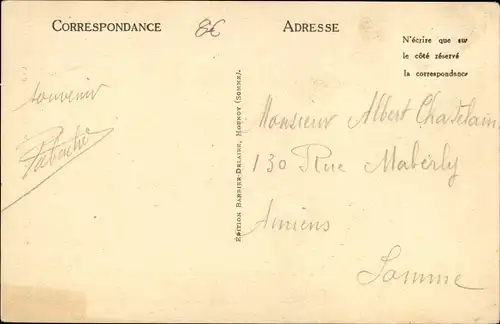 CORRESPONDANCE
8€
ADRESSE
N'écrire que sur
le côté réservé
la correspondance
souvenir
ÉDITION BARBIER-DELAIRE, HORNOY (SOMME).
Monsieur Albert Chatelain
130 Rue Maberly
Amiens
Somme